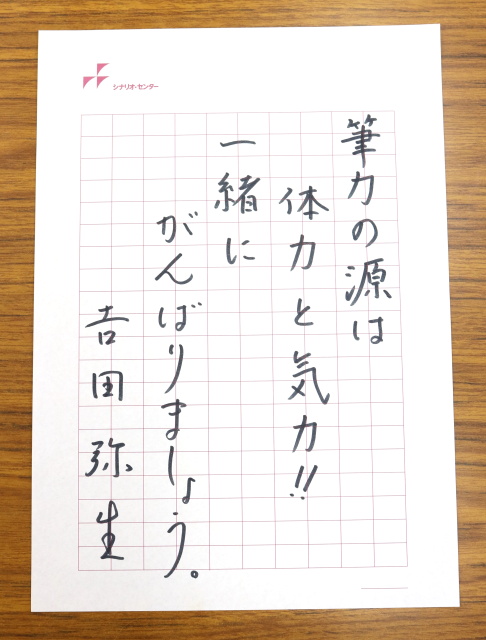 シナリオ・センター
筆力の源は
体力と気力!!
一緒に
がんばりましょう。
吉田弥生